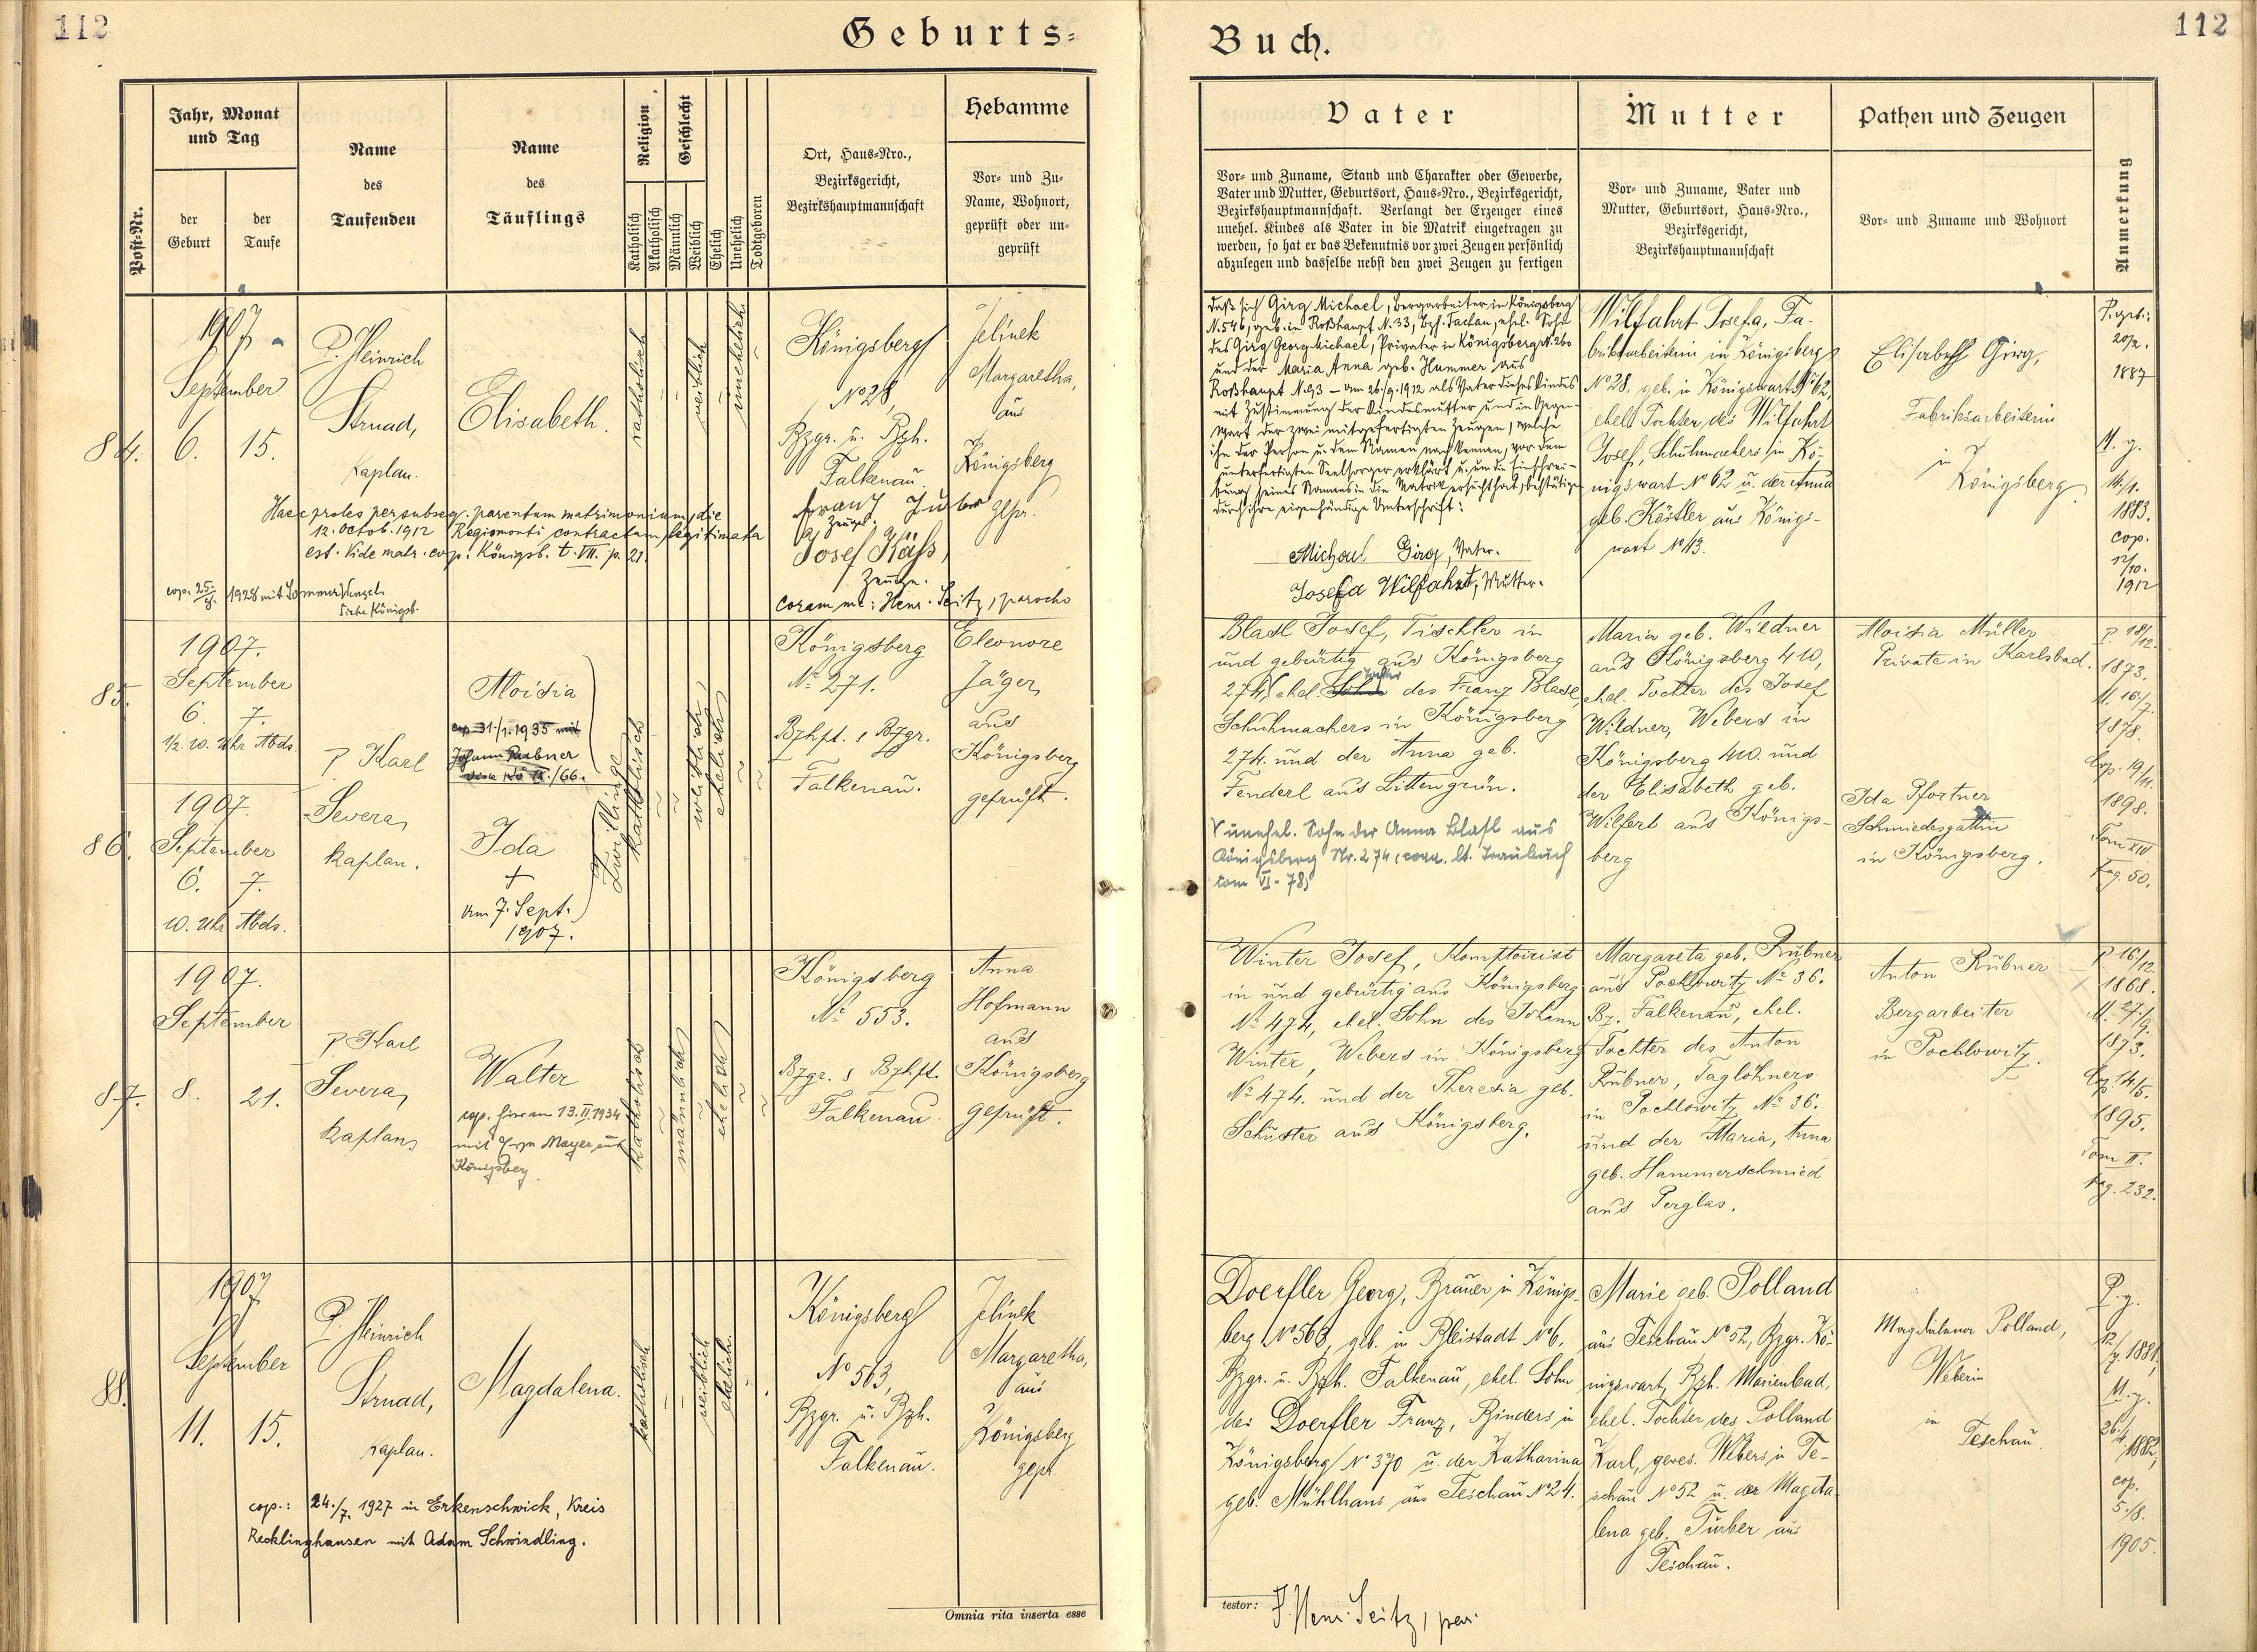 112
Geburts-
Buch.
112
Post-Nr.
Jahr, Monat
und Tag
der
Geburt
der
Taufe
Name
des
Taufenden
Name
des
Täuflings
Religion
Katholisch
Akatholisch
Geschlecht
Männlich
Weiblich
Ehelich
Unehelich
Todtgeboren
Ort, Haus-Nro.,
Bezirksgericht,
Bezirkshauptmannschaft
Hebamme
Vor- und Zu-
Name, Wohnort,
geprüft oder un-
geprüft
Vater
Vor- und Zuname, Stand und Charakter oder Gewerbe,
Vater und Mutter, Geburtsort, Haus-Nro., Bezirksgericht,
Bezirkshauptmannschaft. Verlangt der Erzeuger eines
unehel. Kindes als Vater in die Matrik eingetragen zu
werden, so hat er das Bekenntnis vor zwei Zeugen persönlich
abzulegen und dasselbe nebst den zwei Zeugen zu fertigen
Mutter
Vor- und Zuname, Vater und
Mutter, Geburtsort, Haus-Nro.,
Bezirksgericht,
Bezirkshauptmannschaft
Pathen und Zeugen
Vor- und Zuname und Wohnort
Anmerkung
84.
1907
September
6. 15.
P. Heinrich
Strnad,
Kaplan.
Elisabeth.
katholisch
weiblich
unehelich
Königsberg
No 28,
Bzgr. u. Bzh.
Falkenau.
Jelinek
Margaretha,
aus
Königsberg
gepr.
Haec proles per subseq. parentum matrimonium, die
12. Octob. 1912 Regiomonti contractum, legitimata
est. Vide matr. cop. Königsb. t. VII. p. 21.
Zeuge.
Josef Häß,
Zeuge.
coram me: Henr. Seitz, parocho
daß sich Girg Michael, Bergarbeiter in Königsberg
N. 546, geb. in Roßhaupt N. 33, Bzh. Tachau, ehel. Sohn
des Girg Georg Michael, Privater in Königsberg N. 260
und der Maria Anna geb. Hummer aus
Roßhaupt N. 93 – am 26./9. 1912 als Vater dieses Kindes
mit Zustimmung der Kindesmutter und in Gegen-
wart der zwei mitgefertigten Zeugen, welche
ihn der Person u. dem Namen nach kennen, vor dem
unterfertigten Seelsorger erklärt u. um die Einschrei-
bung seines Namens in die Matrik ersucht hat, bestätigen
durch ihre eigenhändige Unterschrift:
Michael Girg, Vater.
Josefa Wilfahrt, Mutter.
Wilfahrt Josefa, Fa-
briksarbeiterin in Königsberg
No 28, geb. in Königswart No 62,
ehel. Tochter des Wilfahrt
Josef, Schuhmachers in Kö-
nigswart No 62 u. der Anna
geb. Köstler aus Königs-
wart No 113.
Elisabeth Girg,
Fabriksarbeiterin
in
Königsberg.
20/2.
1887
M. g.
14/1.
1883.
cop.
12/10.
1912
85.
1907.
September
6. 7.
1/2 10. Uhr Abds.
P Karl
Severa,
Kaplan.
Aloisia
cop. 31./1. 1935 mit
Johann Rubner
86.
1907.
September
6. 7.
10. Uhr Abds.
Ida
+
am 7. Sept.
1907.
Zwillinge
katholisch
weiblich
ehelich
Königsberg
No 271.
Bzhpt. & Bzgr.
Falkenau.
Eleonore
Jäger,
aus
Königsberg
geprüft.
Blasl Josef, Tischler in
und gebürtig aus Königsberg
274, ehel. Sohn des Franz Blasl,
Schuhmachers in Königsberg
274. und der Anna geb.
Fenderl aus Littengrün.
unehel. Sohn der Anna Blasl aus
Königsberg Nr. 274, corr. lt. Traubuch
tom VI - 78,
Maria geb. Wildner
aus Königsberg 410,
ehel. Tochter des Josef
Wildner, Webers in
Königsberg 410. und
der Elisabeth geb.
Wilfert aus Königs-
berg
Aloisia Müller
Private in Karlsbad.
Ida Pfortner
Schmiedesgattin
in Königsberg.
P. 18/12.
1873.
M. 16/7.
1878.
Cop. 19/11.
1898.
Tom XIV
Pag. 50.
87.
1907.
September
8. 21.
P Karl
Severa,
Kaplan,
Walter
cop. hier am 13. II. 1934
mit Mayer aus
Königsberg.
katholisch
männlich
ehelich
Königsberg
No 553.
Bzgr. & Bzhpt.
Falkenau.
Anna
Hofmann
aus
Königsberg
geprüft.
Winter Josef, Komptoirist
in und gebürtig aus Königsberg
No 474, ehel. Sohn des Johann
Winter, Webers in Königsberg
No 474. und der Theresia geb.
Schuster aus Königsberg.
Margareta geb. Rubner
aus Pochlowitz No 36.
Bz. Falkenau, ehel.
Tochter des Anton
Rubner, Taglöhners
in Pochlowitz No 36.
und der Maria, Anna
geb. Hammerschmied
aus Perglas.
Anton Rubner
Bergarbeiter
in Pochlowitz.
P 16/12.
1868.
M. 27/9.
1873.
Cop 14/5.
1895.
Tom II.
Pag. 232.
88.
1907
September
11. 15.
P. Heinrich
Strnad,
Kaplan.
Magdalena.
cop.: 24./7. 1927 in Erkenschwick, Kreis
Recklinghausen mit Adam Schwindling.
katholisch
weiblich
ehelich.
Königsberg
No 563,
Bzgr. u. Bzh.
Falkenau.
Jelinek
Margaretha,
aus
Königsberg
gepr.
Doerfler Georg, Brauer in Königs-
berg No 563, geb. in Bleistadt No 6.
Bzgr. u. Bzh. Falkenau, ehel. Sohn
des Doerfler Franz, Binders in
Königsberg No 370 u. der Katharina
geb. Mühlhans aus Teschau No 24.
Marie geb. Polland
aus Teschau No 52, Bzgr. Kö-
nigswart, Bzh. Marienbad,
ehel. Tochter des Polland
Karl, gewes. Webers in Te-
schau No 52 u. der Magda-
lena geb. Türber aus
Teschau.
Magdalena Polland,
Weberin
in
Teschau.
P. g.
12./7. 1881,
M. g.
26./4. 1882,
cop.
5./8.
1905.
Omnia rita inserta esse
testor: P. Henr. Seitz, par.